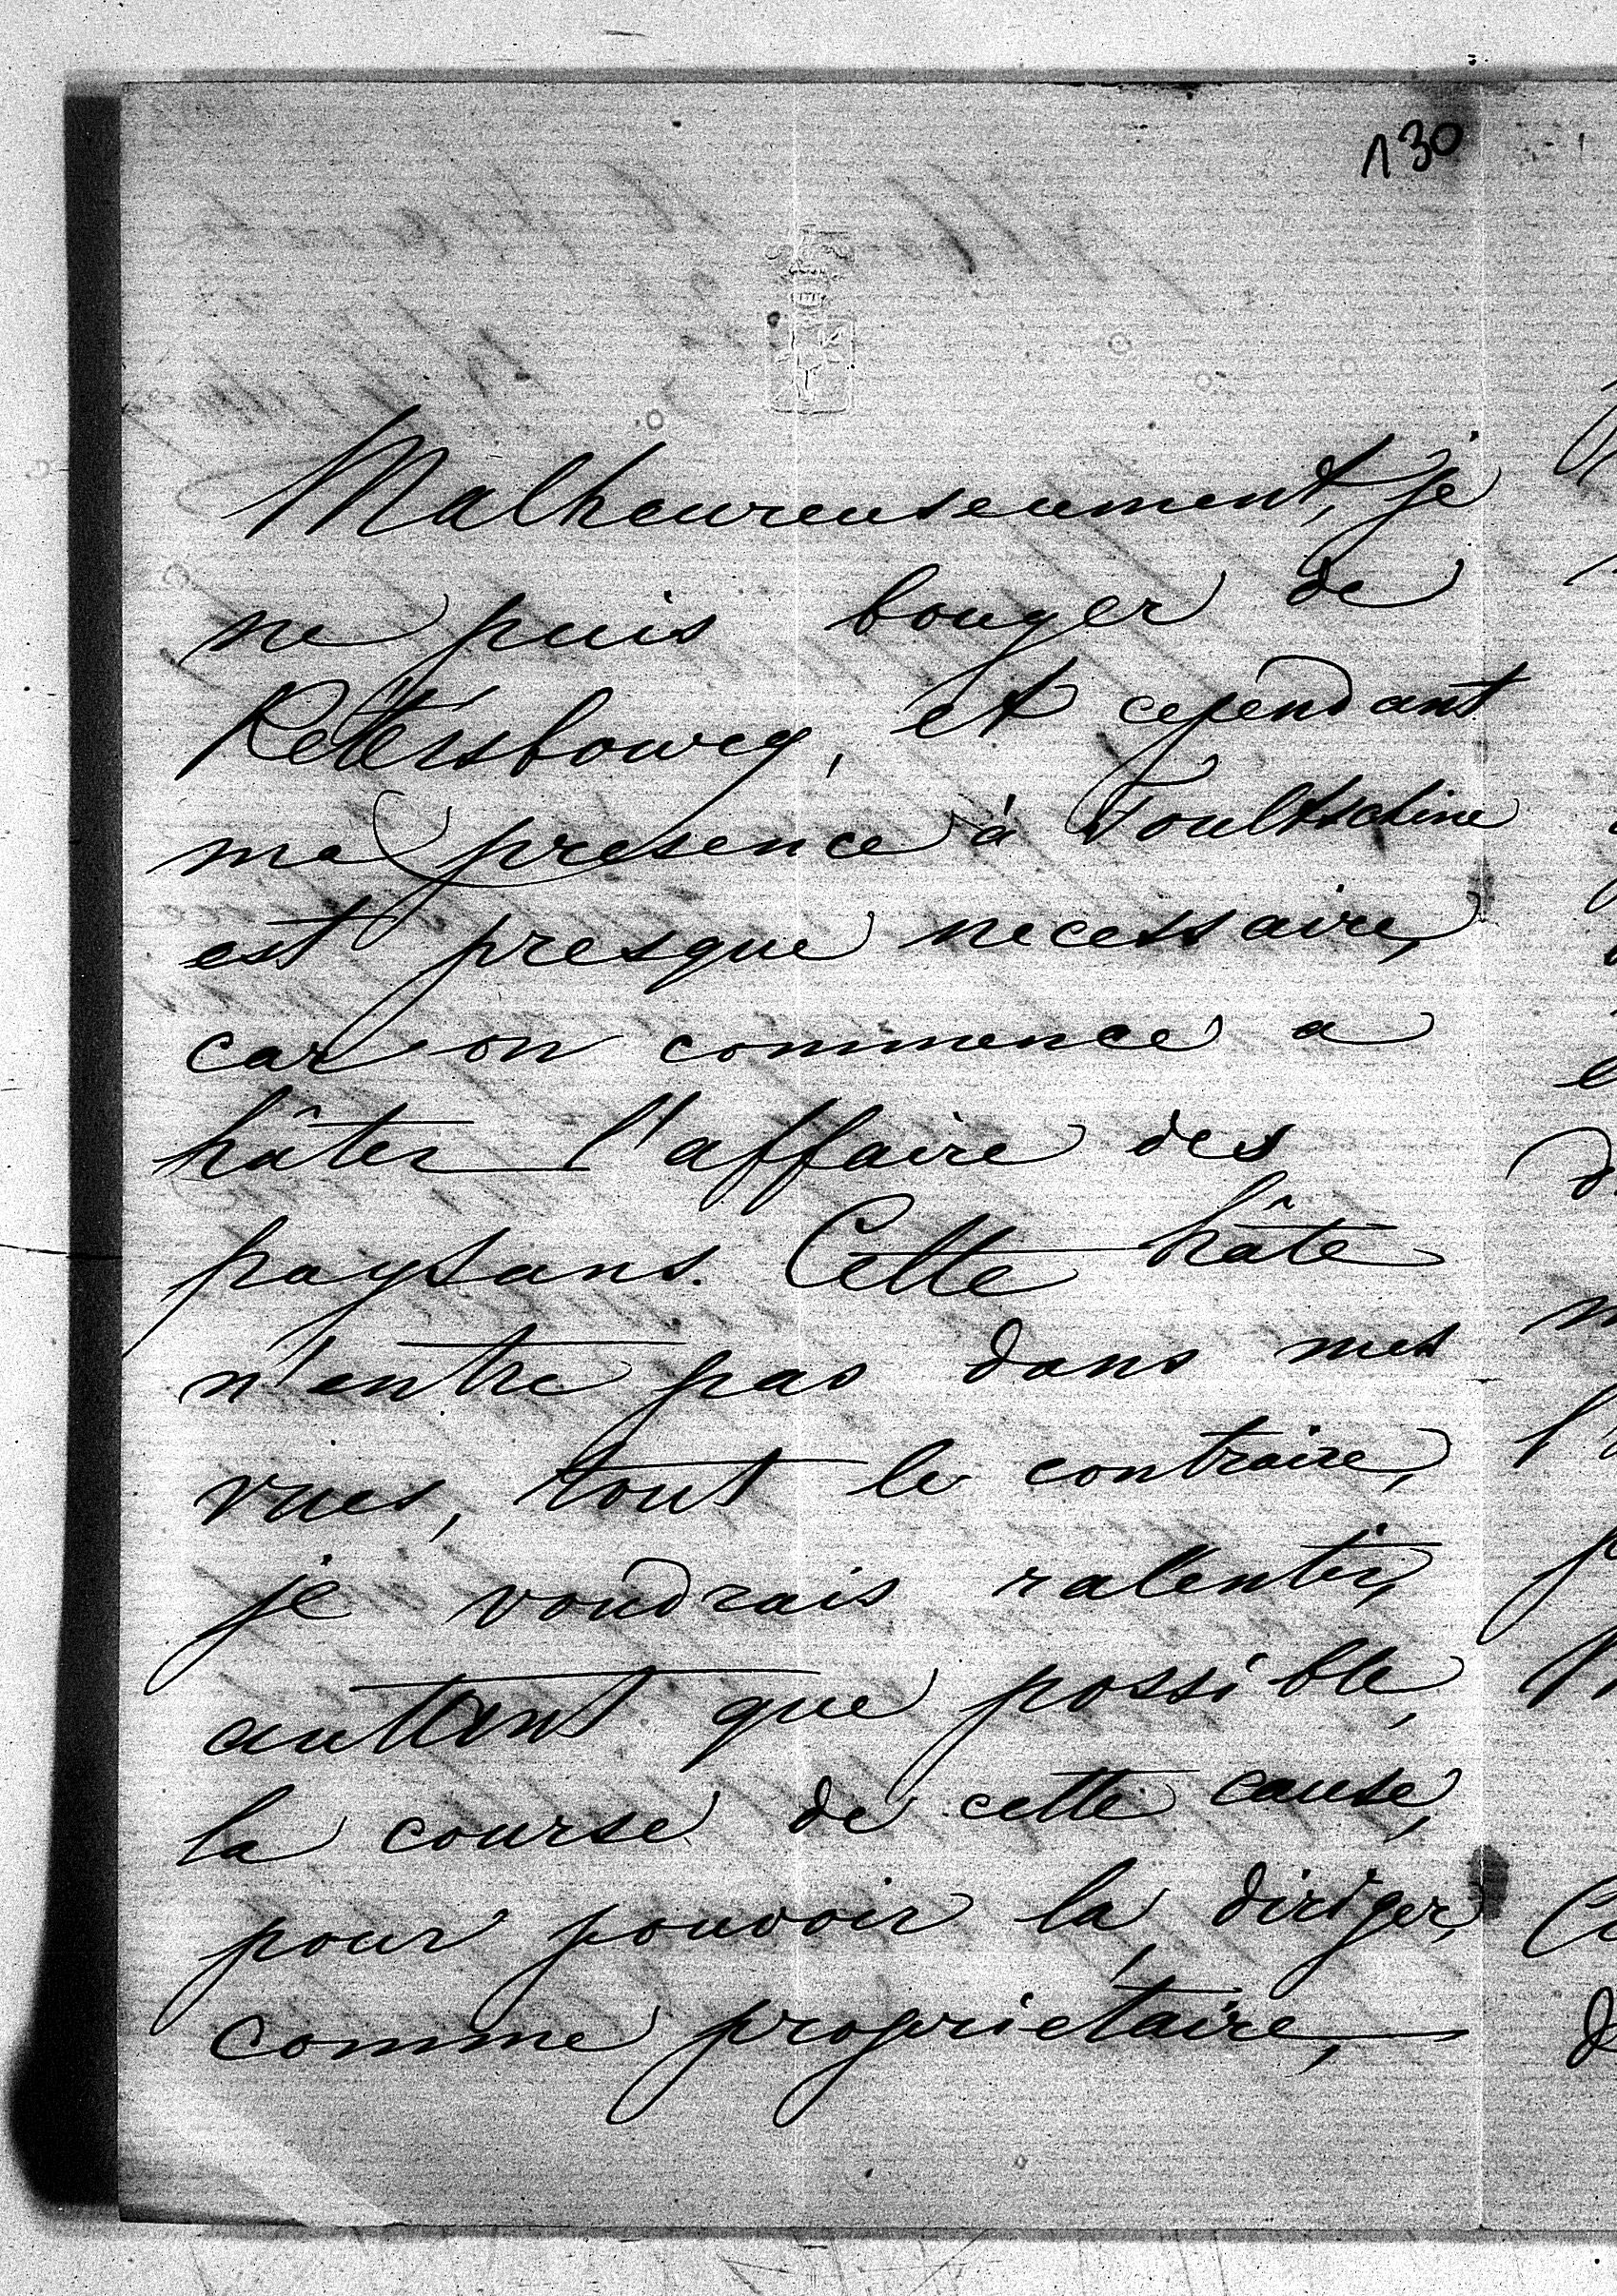 130
Malheureuseument, je
ne puis bouger de
Pettersbourg, et cependant
ma presence à Toultschine
est presque necessaire,
car on commence a
hâter l'affaire des
paysans. Cette hâte
n'entre pas dans mes
vues, tout le contraire,
je voudrais ralentir,
auttant que possible,
la course de cette cause,
pour pouvoir la diriger,
comme proprietaire,